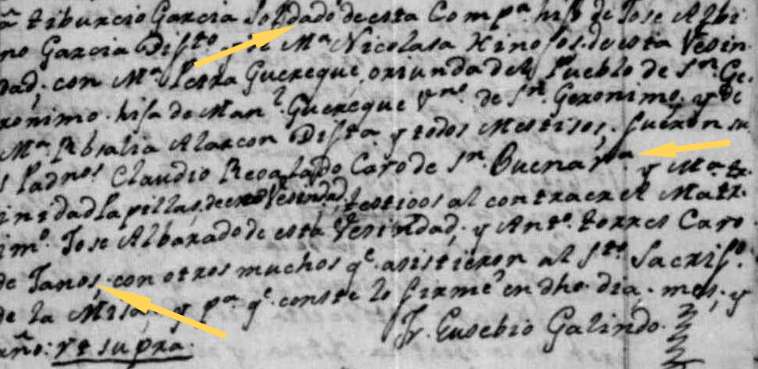 a tiburcio Garcia Soldado de esta Compª hijo de Jose Albi
no Garcia Difto y de Mª Nicolasa Hinojos. de esta Vesin
dad; con Mª Petra Guereque, oriunda del Pueblo de Sn. Ge
ronimo. hija de Manl. Guereque vno. de Sn. Geronimo. y de
Mª Rosalia Alarcon Difta. y todos Mestisos; fueron su
s Padnos Claudio Regalado Caro de Sn. Buena vta y Mª tr
inidad lapillas, de esta Vesindad, testigos al contraer el Matr
imo. Jose Albarado de esta Vesindad; y Anto. torres Caro
de Janos; con otros muchos qe. asistieron al Sto. Sacrifo.
de la Misa; y pª qe. conste lo firmé en dho. dia. mes, y
año: vt supra.
Fr. Eusebio Galindo.